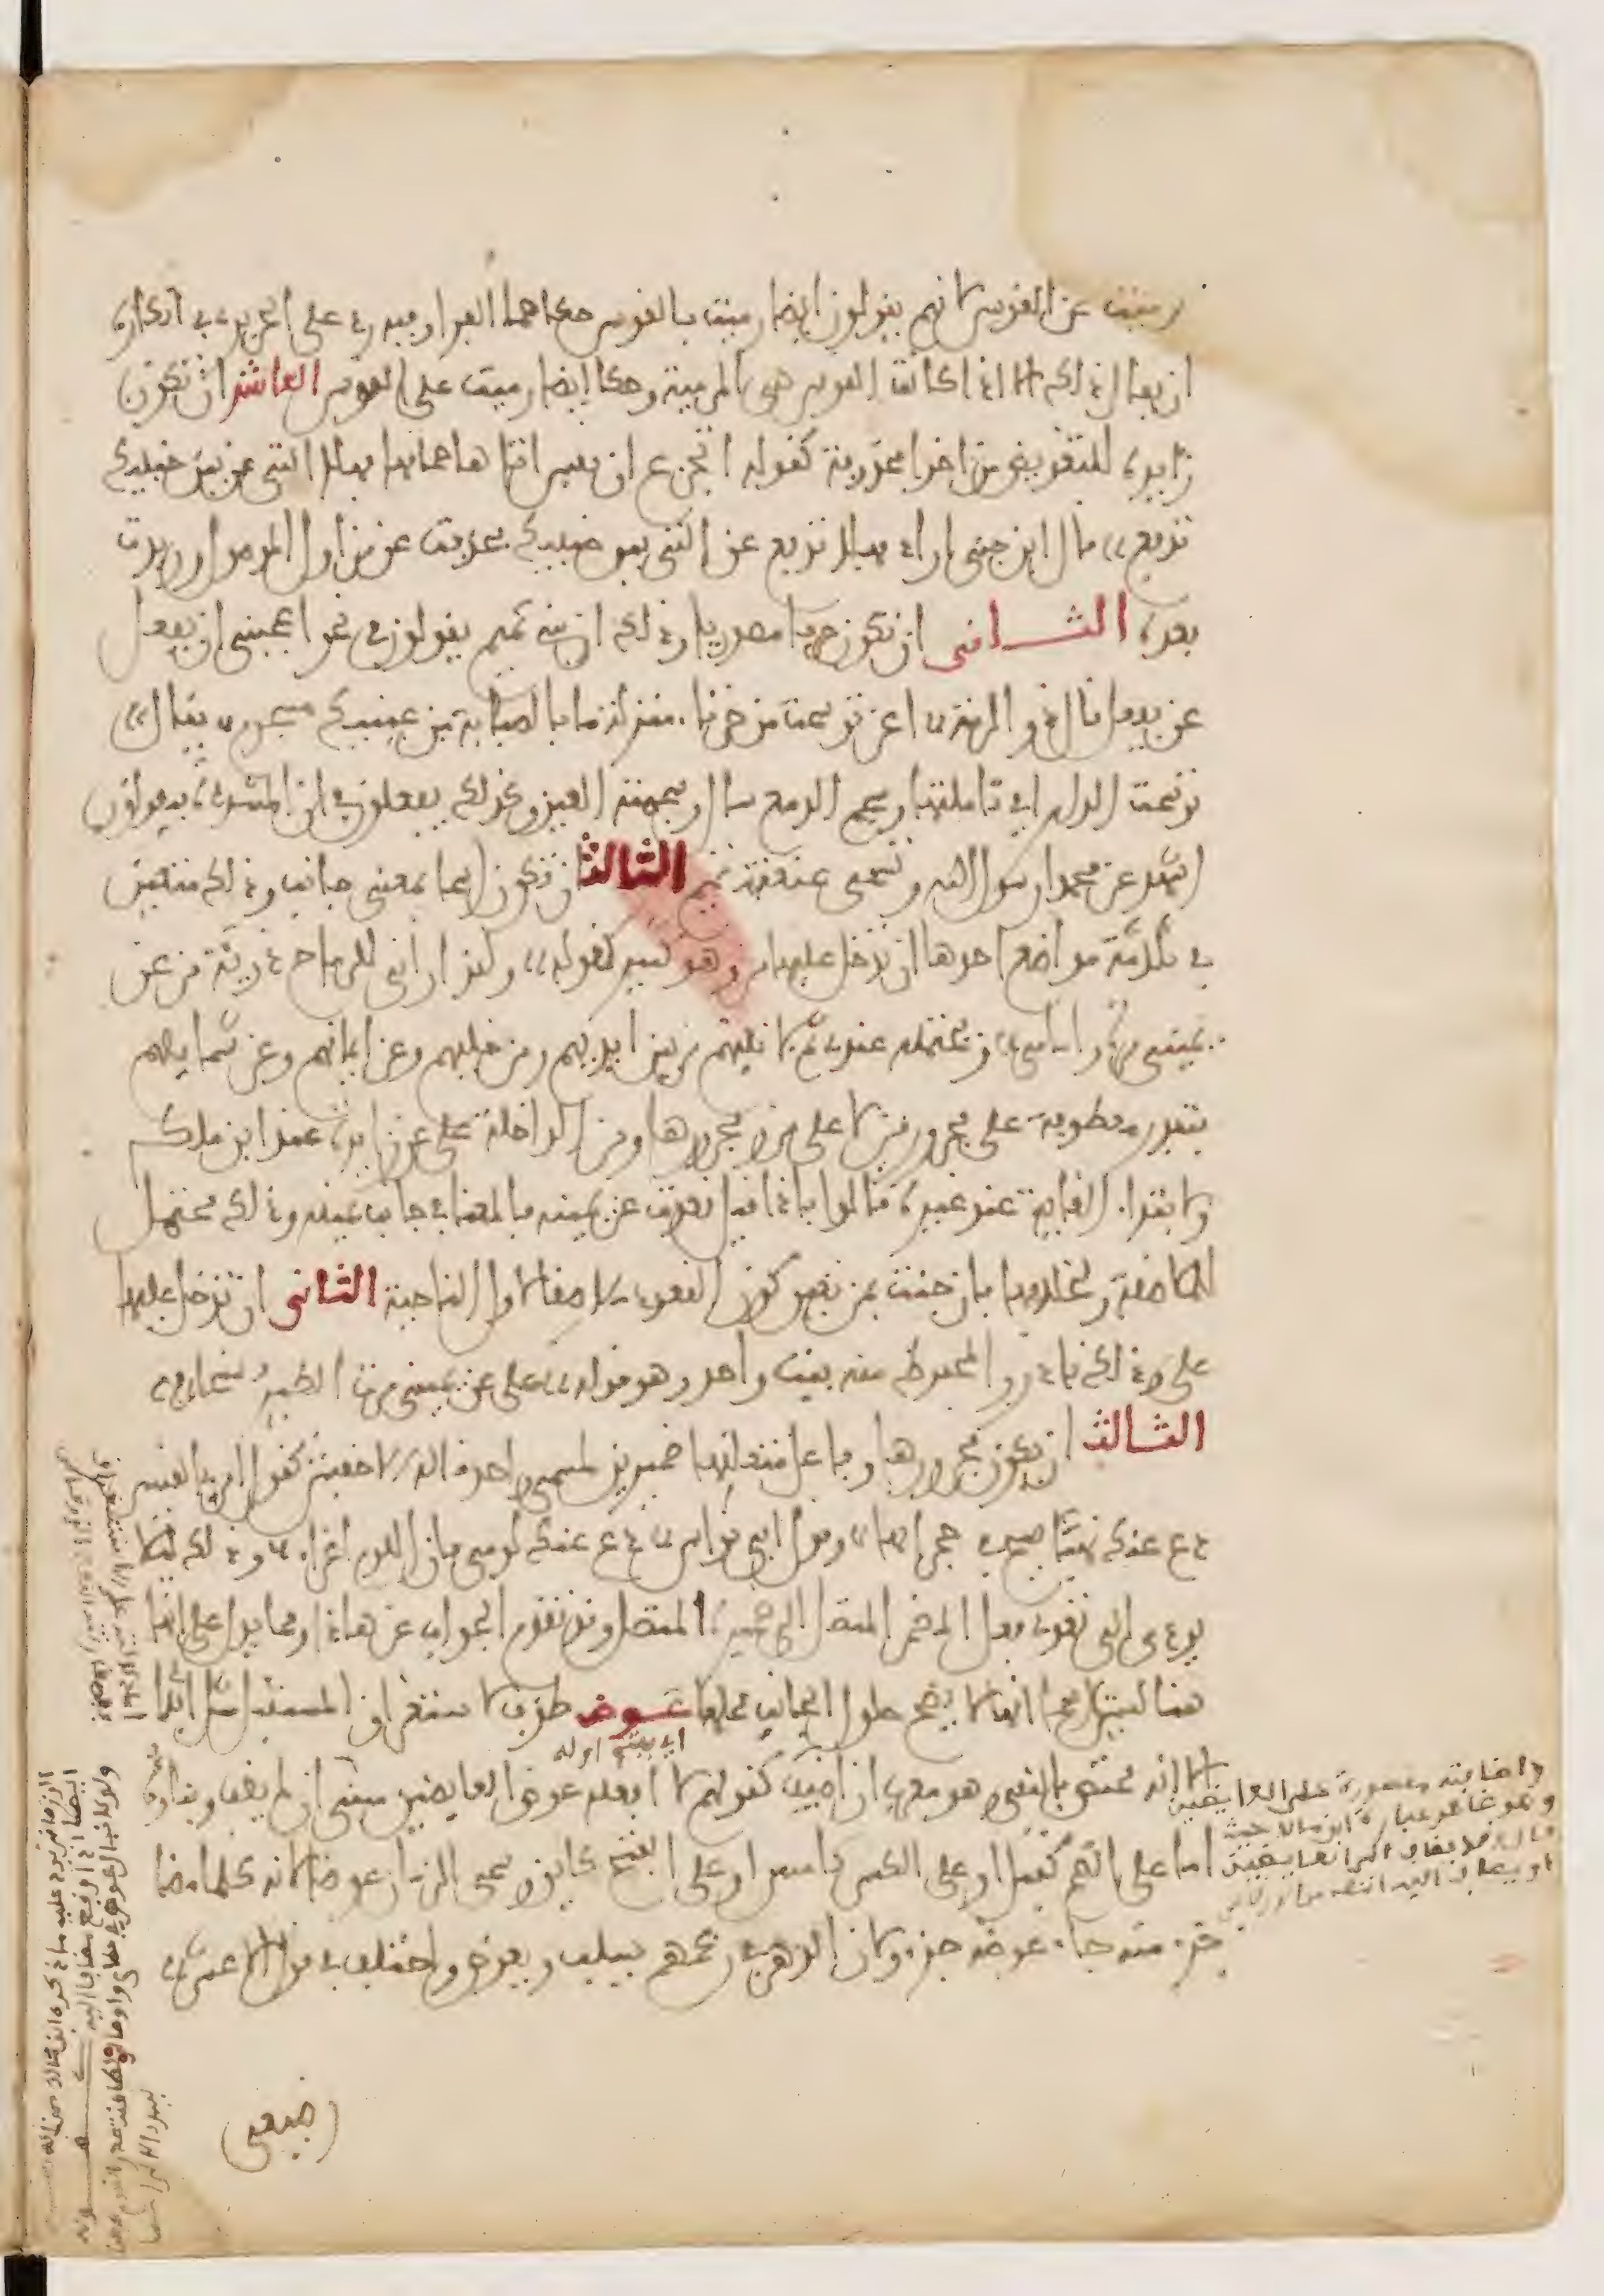 رميت عن القوس لانهم يقولون ايضا رميت بالقوس حكاهما الفرا وفيه رد على الحريري في انكاره
ان يقال ذلك الا اذا كانت القوس هي المرمية وحكا ايضا رميت على القوس العاشر ان تكون
زايدة للتعويض من اخرا محذوفة كقوله اتجزع ان نفس اتاها حمامها فهلا التي عن بين جنبيك
تدفع قال ابن جني اراد فهلا تدفع عن التي بين جنبيك فحذفت عن من اول الموصول وزيدت
بعده الثاني ان تكون حرفا مصدريا وذلك ان بني تميم يقولون في نحو اعجبني ان تفعل
عن تفعل قال ذو الرمة اعن ترسمت من خرقا منزلة ما الصبابة من عينيك مسجوم يقال
ترسمت الدار اي تاملتها وسجم الدمع سال وسجمته العين وكذلك يفعلون في ان المشددة فيقولون
اشهد عن محمدا رسول الله وتسمى عنعنة تميم الثالث ان تكون اسما بمعنى جانب وذلك متعين
في ثلاثة مواضع احدها ان تدخل عليها من وهو كثير كقوله ولقد اراني للرماح دريئة من عن
يميني مرة وامامي ويحتمله عندي ثم لاتينهم من بين ايديهم ومن خلفهم وعن ايمانهم وعن شمايلهم
فتقدر معطوفة على مجرور من لا على من ومجرورها ومن الداخلة على عن زايدة عند ابن ملك
ولابتداء الغاية عند غيره قالوا فاذا قيل قعدت عن يمينه فالمعنا في جانب يمينه وذلك محتمل
للملاصقة ولخلافها فان جئت بمن تعين كون القعود ملاصقا لاول الناحية الثاني ان تدخل عليها
على وذلك نادر والمحفوظ منه بيت واحد وهو قوله على عن يميني مرت الطير سنحا
الثالث ان يكون مجرورها وفاعل متعلقها ضميرين لمسمى واحد قاله الاخفش كقول امرئ القيس
دع عنك نهبا صيح في حجراته وقول ابي نواس دع عنك لومي فان اللوم اغراء وذلك ليلا
يودي الى تعدي فعل المضمر المتصل الى ضميره المتصل وقد تقدم الجواب عن هذا ومما يدل على انها
هنا ليست اسما انها لا يصح حلول الجانب محلها عوض ظرف لاستغراق المستقبل مثل ابدا
اي بيتثليث اوله
الا انه مختص بالنفي وهو معرب ان اضيف كقولهم لا افعله عوض العايضين مبني ان لم يضف وبناوه
اما على الضم كقبل او على الكسر كامس او على الفتح كاين وسمي الزمان عوضا لانه كلما مضا
جزء منه جاء عوضه جزء وكان الدهر في زعمهم يسلب ويعوض واختلف في قول الاعشى
رضيعي
واضافته مقصورة على العايضين
وهو ظاهر عبارة ابن مالك حيث
قال وقد يضاف الى العايضين
او يضاف اليه انتهى